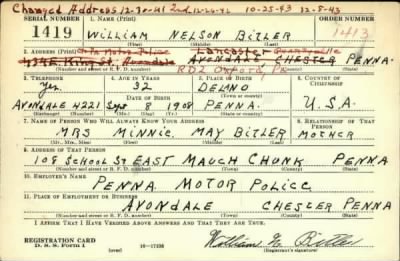 Changed Address 12-30-41 2nd 12-26-42 10-25-43 12-8-43
SERIAL NUMBER 1. NAME (Print) ORDER NUMBER
1419 WILLIAM NELSON BITLER 1413
(First) (Middle) (Last)
2. ADDRESS (Print) Penna Motor Police Lancaster
434 E. King St. Avondale AVONDALE, CHESTER PENNA.
RD2 Oxford, Pa
3. TELEPHONE 4. AGE IN YEARS 5. PLACE OF BIRTH 6. COUNTRY OF CITIZENSHIP
Yes. 32 DELANO
DATE OF BIRTH (Town or county)
AVONDALE 4221 Sept 8 1908 PENNA. U.S.A.
(Exchange) (Number) (Mo.) (Day) (Yr.) (State or country)
7. NAME OF PERSON WHO WILL ALWAYS KNOW YOUR ADDRESS 8. RELATIONSHIP OF THAT PERSON
MRS MINNIE MAY BITLER MOTHER
(Mr., Mrs., Miss) (First) (Middle) (Last)
9. ADDRESS OF THAT PERSON
108 SCHOOL ST EAST MAUCH CHUNK PENNA
(Number and street or R. F. D. number) (Town) (County) (State)
10. EMPLOYER'S NAME
PENNA. MOTOR POLICE
11. PLACE OF EMPLOYMENT OR BUSINESS
AVONDALE CHESTER PENNA
(Number and street or R. F. D. number) (Town) (County) (State)
I AFFIRM THAT I HAVE VERIFIED ABOVE ANSWERS AND THAT THEY ARE TRUE.
REGISTRATION CARD
D. S. S. Form 1 (over) 16-17105 William N. Bitler
(Registrant's signature)